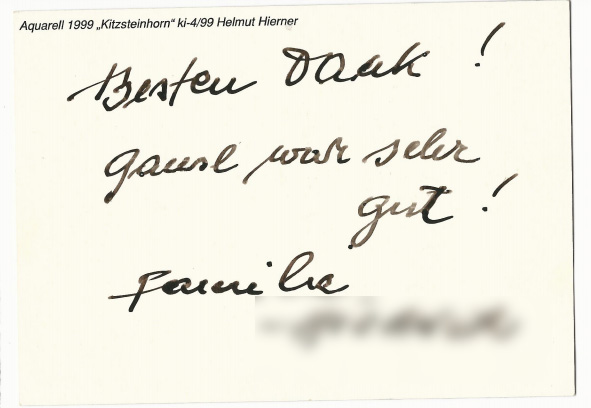 Aquarell 1999 „Kitzsteinhorn“ ki-4/99 Helmut Hierner
Besten Dank !
gansl war sehr
gut !
Familie